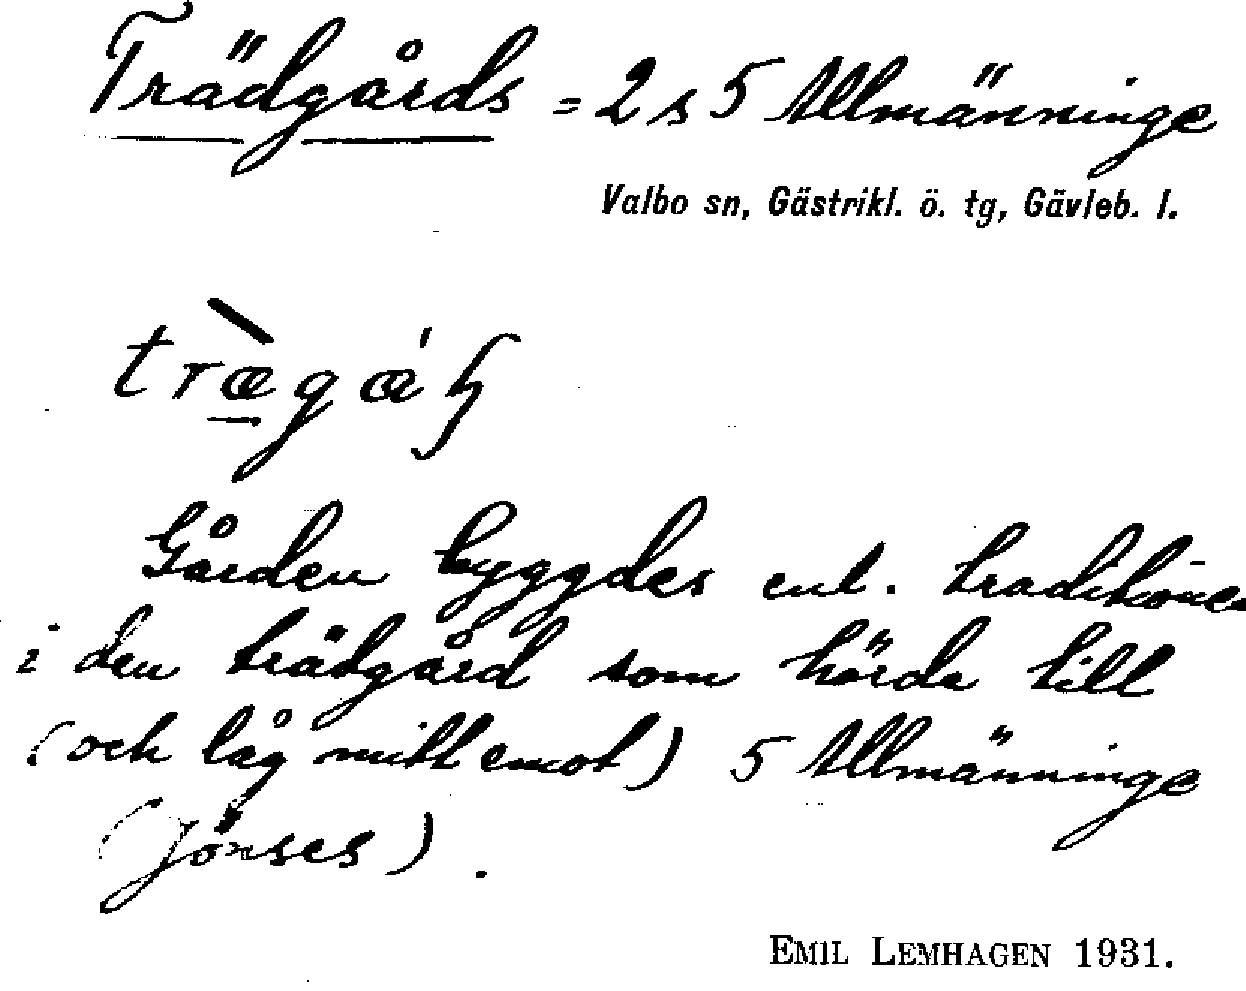 Trädgårds = 2 s 5 Allmänninge
Valbo sn, Gästrikl. ö. tg, Gävleb. l.
træ̀gæ'ꞕ
Gården byggdes enl. traditionen
i den trädgård som hörde till
(och låg mitt emot) 5 Allmänninge
(Jönses).
EMIL LEMHAGEN 1931.